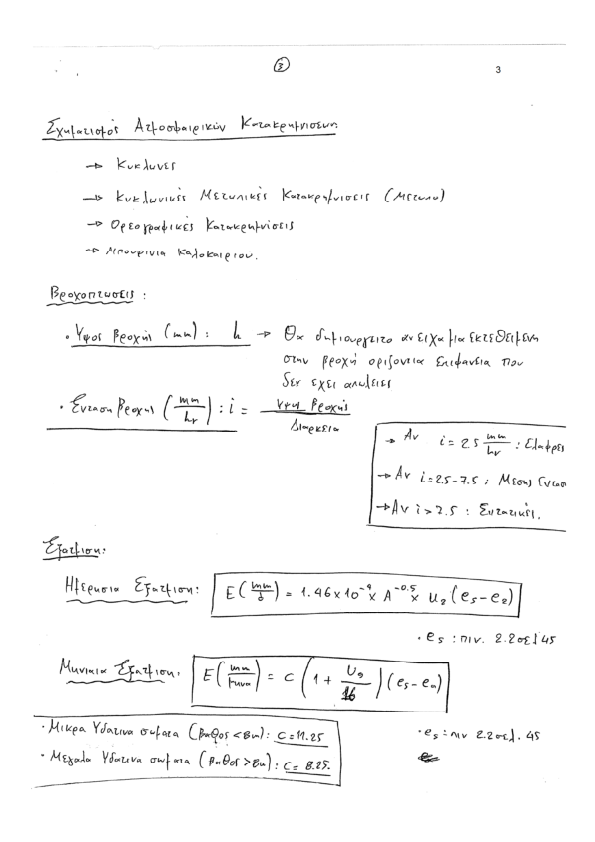 ③ 3
Σχηματισμός Ατμοσφαιρικών Κατακρημνισεων:
→ Κυκλωνες
→ Κυκλωνικές Μετωπικές Κατακρημνισεις (Μετωπα)
→ Ορεογραφικές Κατακρημνίσεις
→ Μπουρινια καλοκαιριου.
Βροχοπτωσεις :
• Υψος βροχής (mm) : h → Θα δημιουργειτο αν ειχα μια εκτεθειμενη
στην βροχή οριζοντια επιφανεια που
δεν εχει απωλειες
• Ενταση βροχης (mm/hr) : i = Υψος βροχής / Διαρκεια
→ Αν i = 2.5 mm/hr : Ελαφρες
→ Αν i = 2.5 - 7.5 : Μεσης Εντασ
→ Αν i > 7.5 : Εντατικές.
Εξατμιση:
Ημερησια Εξατμιση: E (mm/δ) = 1.46 x 10^-9 x A^-0.5 x U2 (es - e2)
• es : πιν. 2.2 σελ 45
Μηνιαια Εξατμιση: E (mm/μηνα) = C (1 + U9/16) (es - ea)
• Μικρα Υδατινα σωματα (βαθος < 8m) : C = 11.25
• es : πιν 2.2 σελ. 45
• Μεγαλα Υδατινα σωματα (βαθος > 8m) : C = 8.25.